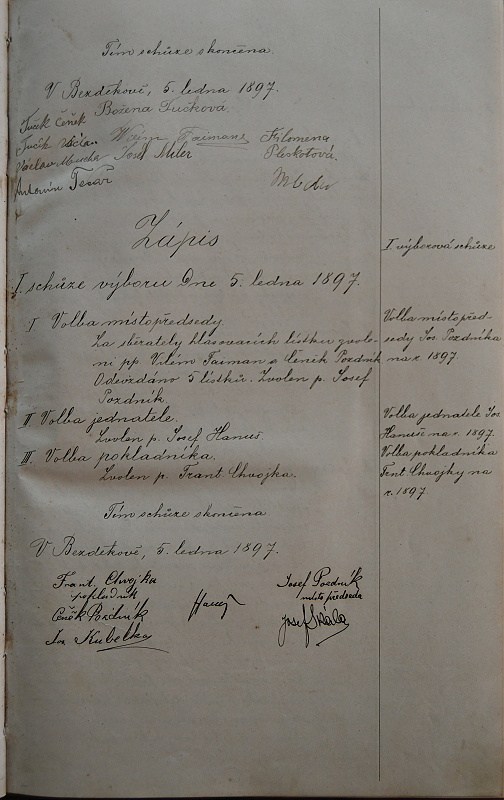 Tím schůze skončena.
V Bezděkově, 5. ledna 1897.
Tuček Čeněk Božena Tučková.
Tuček Václav Vilém Taimann Filomena
Václav Mucha Josef Miler Pleskotová.
Antonín Tesař
Zápis
I. schůze výboru Dne 5. ledna 1897.
I. výborová schůze
I Volba místopředsedy.
Za sběrately hlasovacích lístků zvole-
ni pp. Vilém Taiman a Čeněk Pozdník
Odevzdáno 5 lístků. Zvolen p. Josef
Pozdník.
Volba místopřed-
sedy Jos. Pozdníka
na r. 1897
II Volba jednatele.
Zvolen p. Josef Hanuš.
III. Volba pokladníka.
Zvolen p. Frant. Chvojka.
Volba jednatele Jos.
Hanuše na r. 1897.
Volba pokladníka
Frnt. Chvojky na
r. 1897
Tím schůze skončena
V Bezděkově, 5. ledna 1897.
Frant. Chvojka
pokladník
Čeněk Pozdník
Jos. Kubelka
Hanuš
Josef Pozdník
místopředseda
Josef Skála